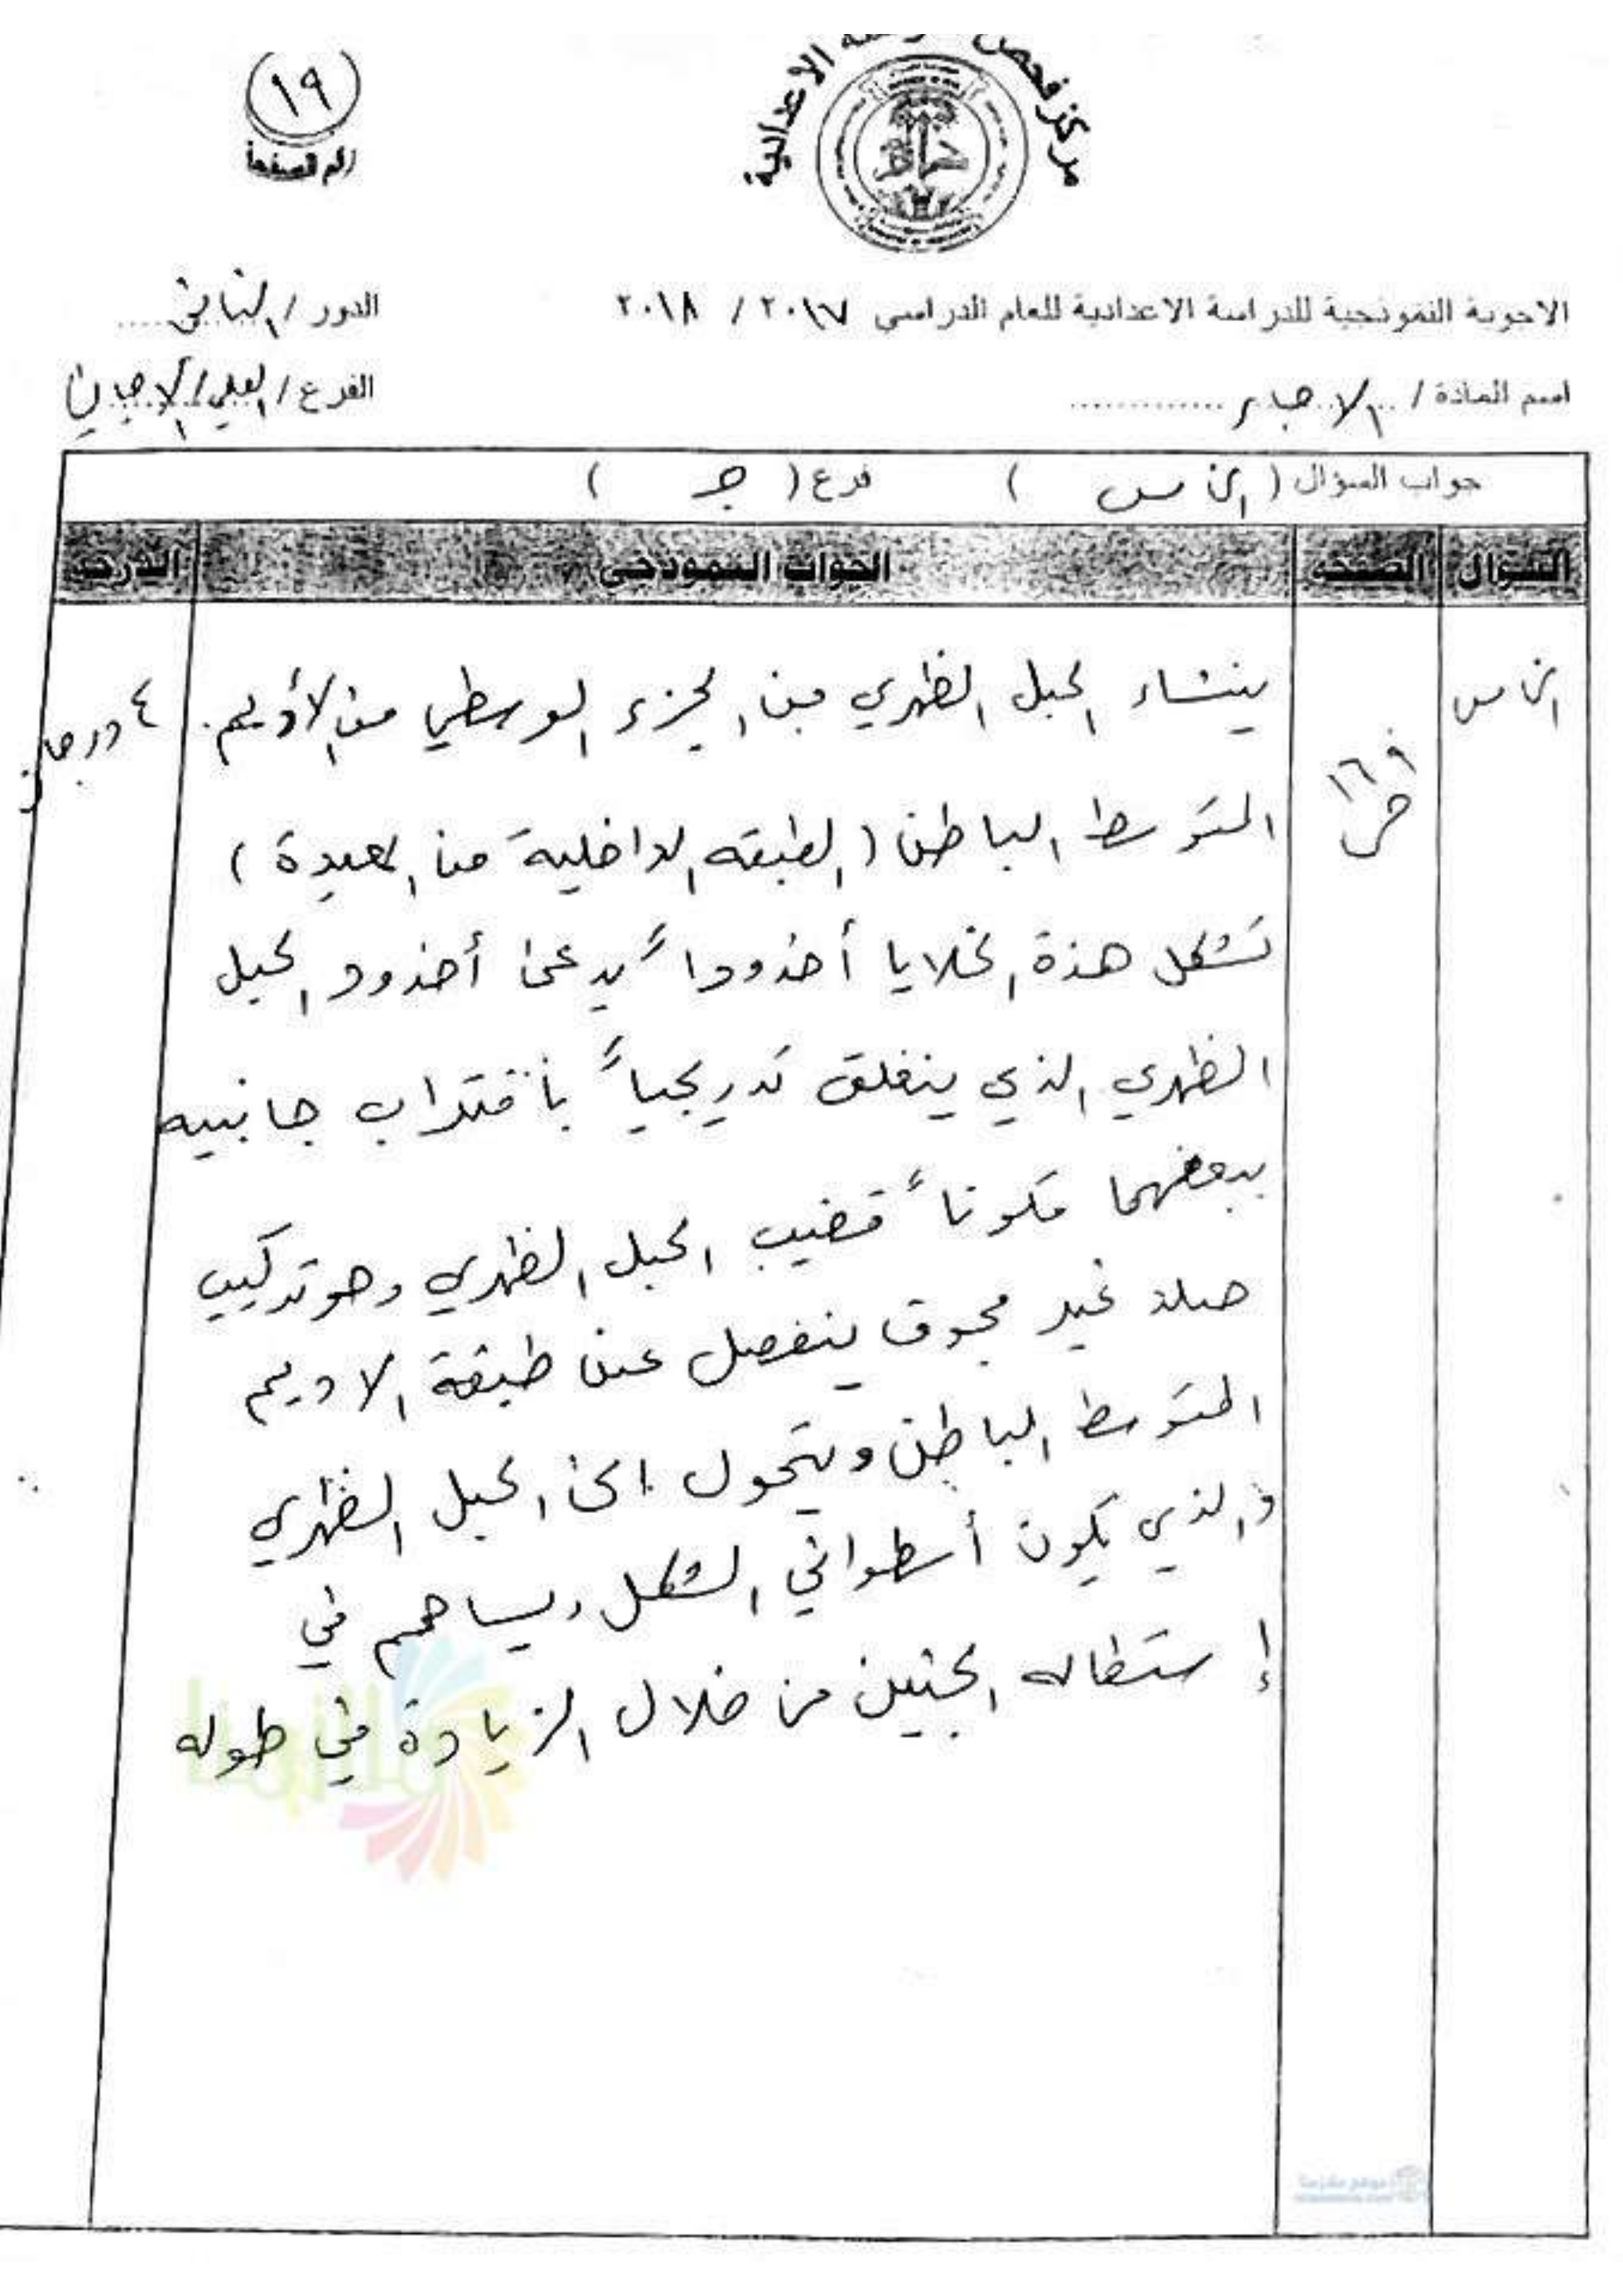 ١٩
رقم الصفحة
مركز فحص الدراسة الاعدادية
الاجوبة النموذجية للدراسة الاعدادية للعام الدراسي ٢٠١٧ / ٢٠١٨
الدور / الثاني
اسم المادة / الاحياء
الفرع / العلمي / الاحيائي
جواب السؤال ( الخامس ) فرع ( جـ )
السؤال الصفحة الجواب النموذجي الدرجة
الخامس
ص ١٦٩
٤ درجات
ينشاء الحبل الظهري من الجزء الوسطي من الأديم
المتوسط الباطن ( الطبقه الداخلية من المعيدة )
تشكل هذة الخلايا أخدوداً يدعى أخدود الحبل
الظهري الذي ينغلق تدريجياً بأقتراب جانبيه
ببعضهما مكوناً قضيب الحبل الظهري وهو تركيب
صلد غير مجوف ينفصل عن طبقة الاديم
المتوسط الباطن ويتحول الى الحبل الظهري
والذي يكون أسطواني الشكل ويساهم في
إستطاله الجنين من خلال الزيادة في طوله
ملازمنا
موقع ملازمنا